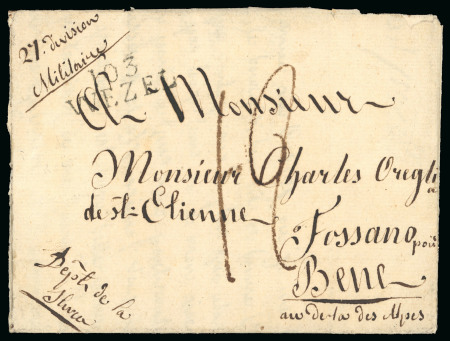 27.e division
Militaire
103
WEZEL
A Monsieur
Monsieur Charles Oreglia
de St. Etienne
Fossano pour
Bene
au de-la des Alpes
Dépt. de la
Stura